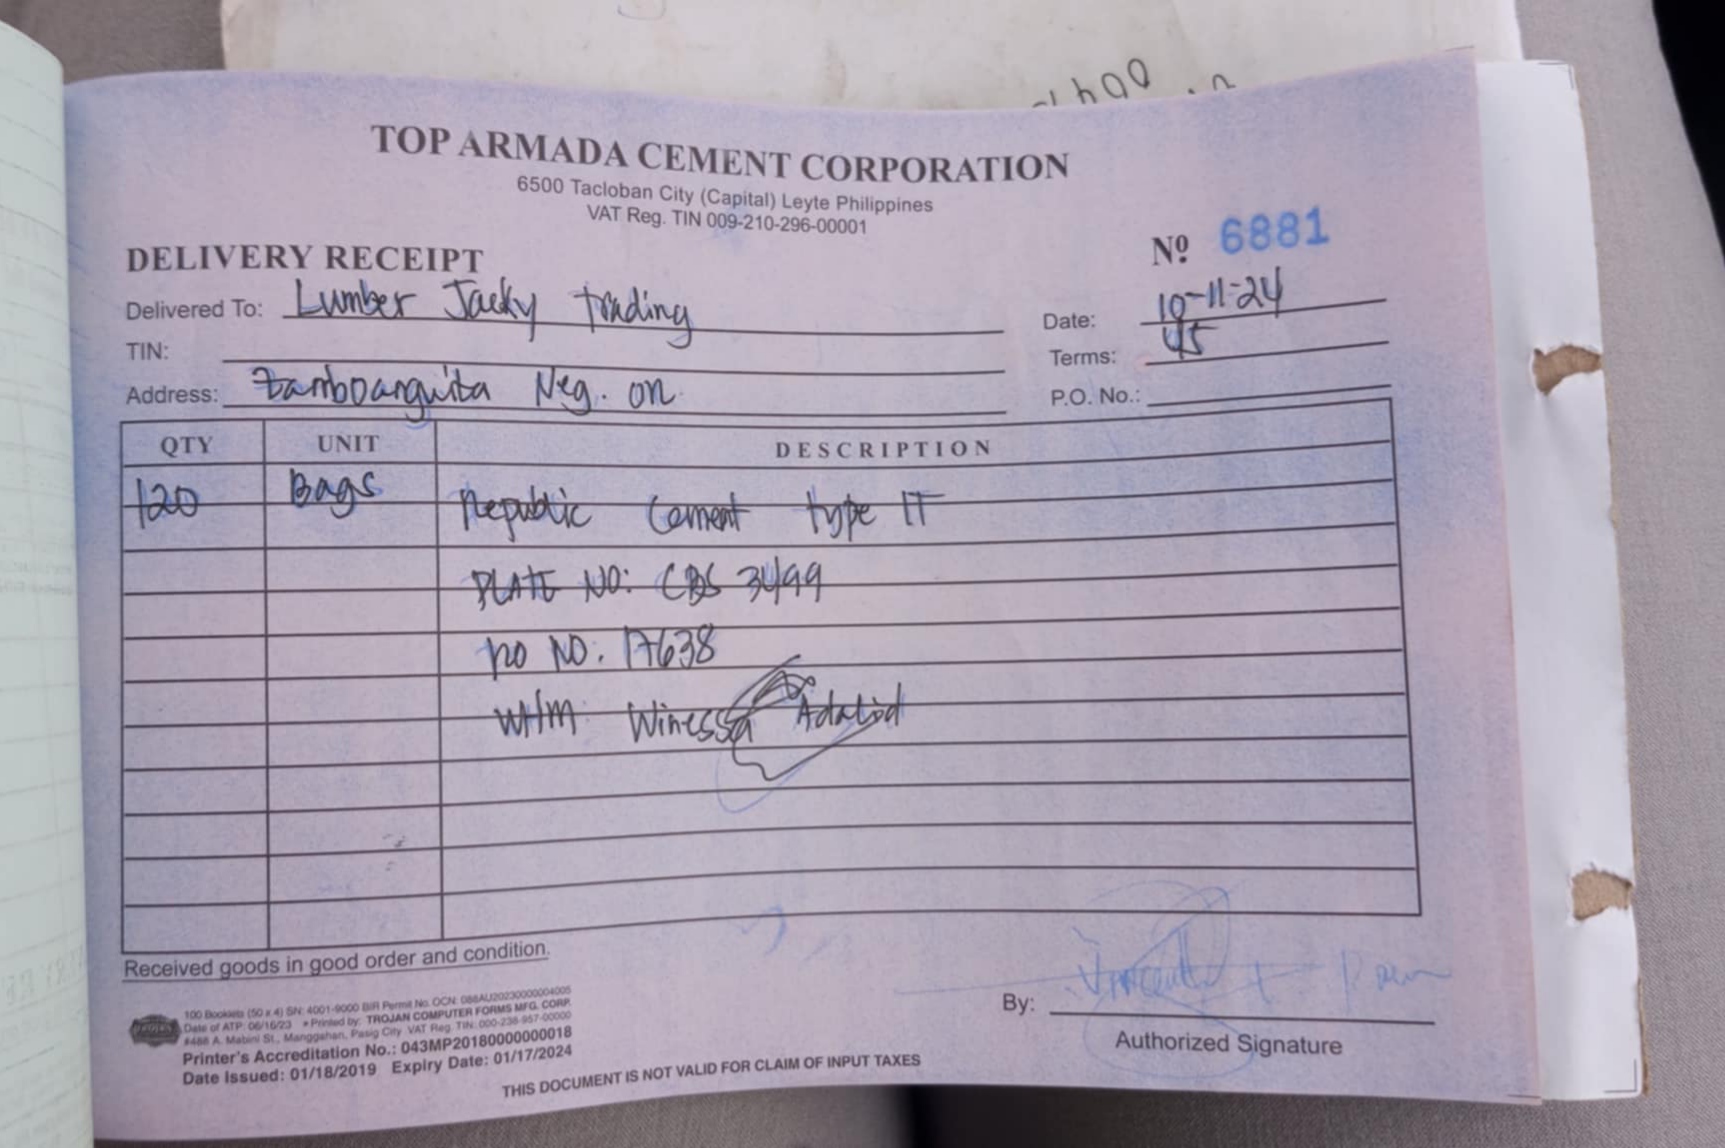 TOP ARMADA CEMENT CORPORATION
6500 Tacloban City (Capital) Leyte Philippines
VAT Reg. TIN 009-210-296-00001
Nº 6881
DELIVERY RECEIPT
Delivered To: Lumber Jacky trading
Date: 10-11-24
TIN:
Terms: 45
Address: Zamboanguita Neg. on
P.O. No.:
QTY UNIT DESCRIPTION
120 Bags Republic Cement type IT
PLATE NO: CBS 3499
NO. 17638
WHM: Winessa Adalid
Received goods in good order and condition.
By:
Authorized Signature
100 Booklets (50 x 4) SN: 4001-9000 BIR Permit No. OCN: 088AU20230000004005
Date of ATP: 06/16/23 • Printed by: TROJAN COMPUTER FORMS MFG. CORP.
#488 A. Mabini St., Manggahan, Pasig City VAT Reg. TIN: 000-238-957-00000
Printer's Accreditation No.: 043MP20180000000018
Date Issued: 01/18/2019 Expiry Date: 01/17/2024
THIS DOCUMENT IS NOT VALID FOR CLAIM OF INPUT TAXES